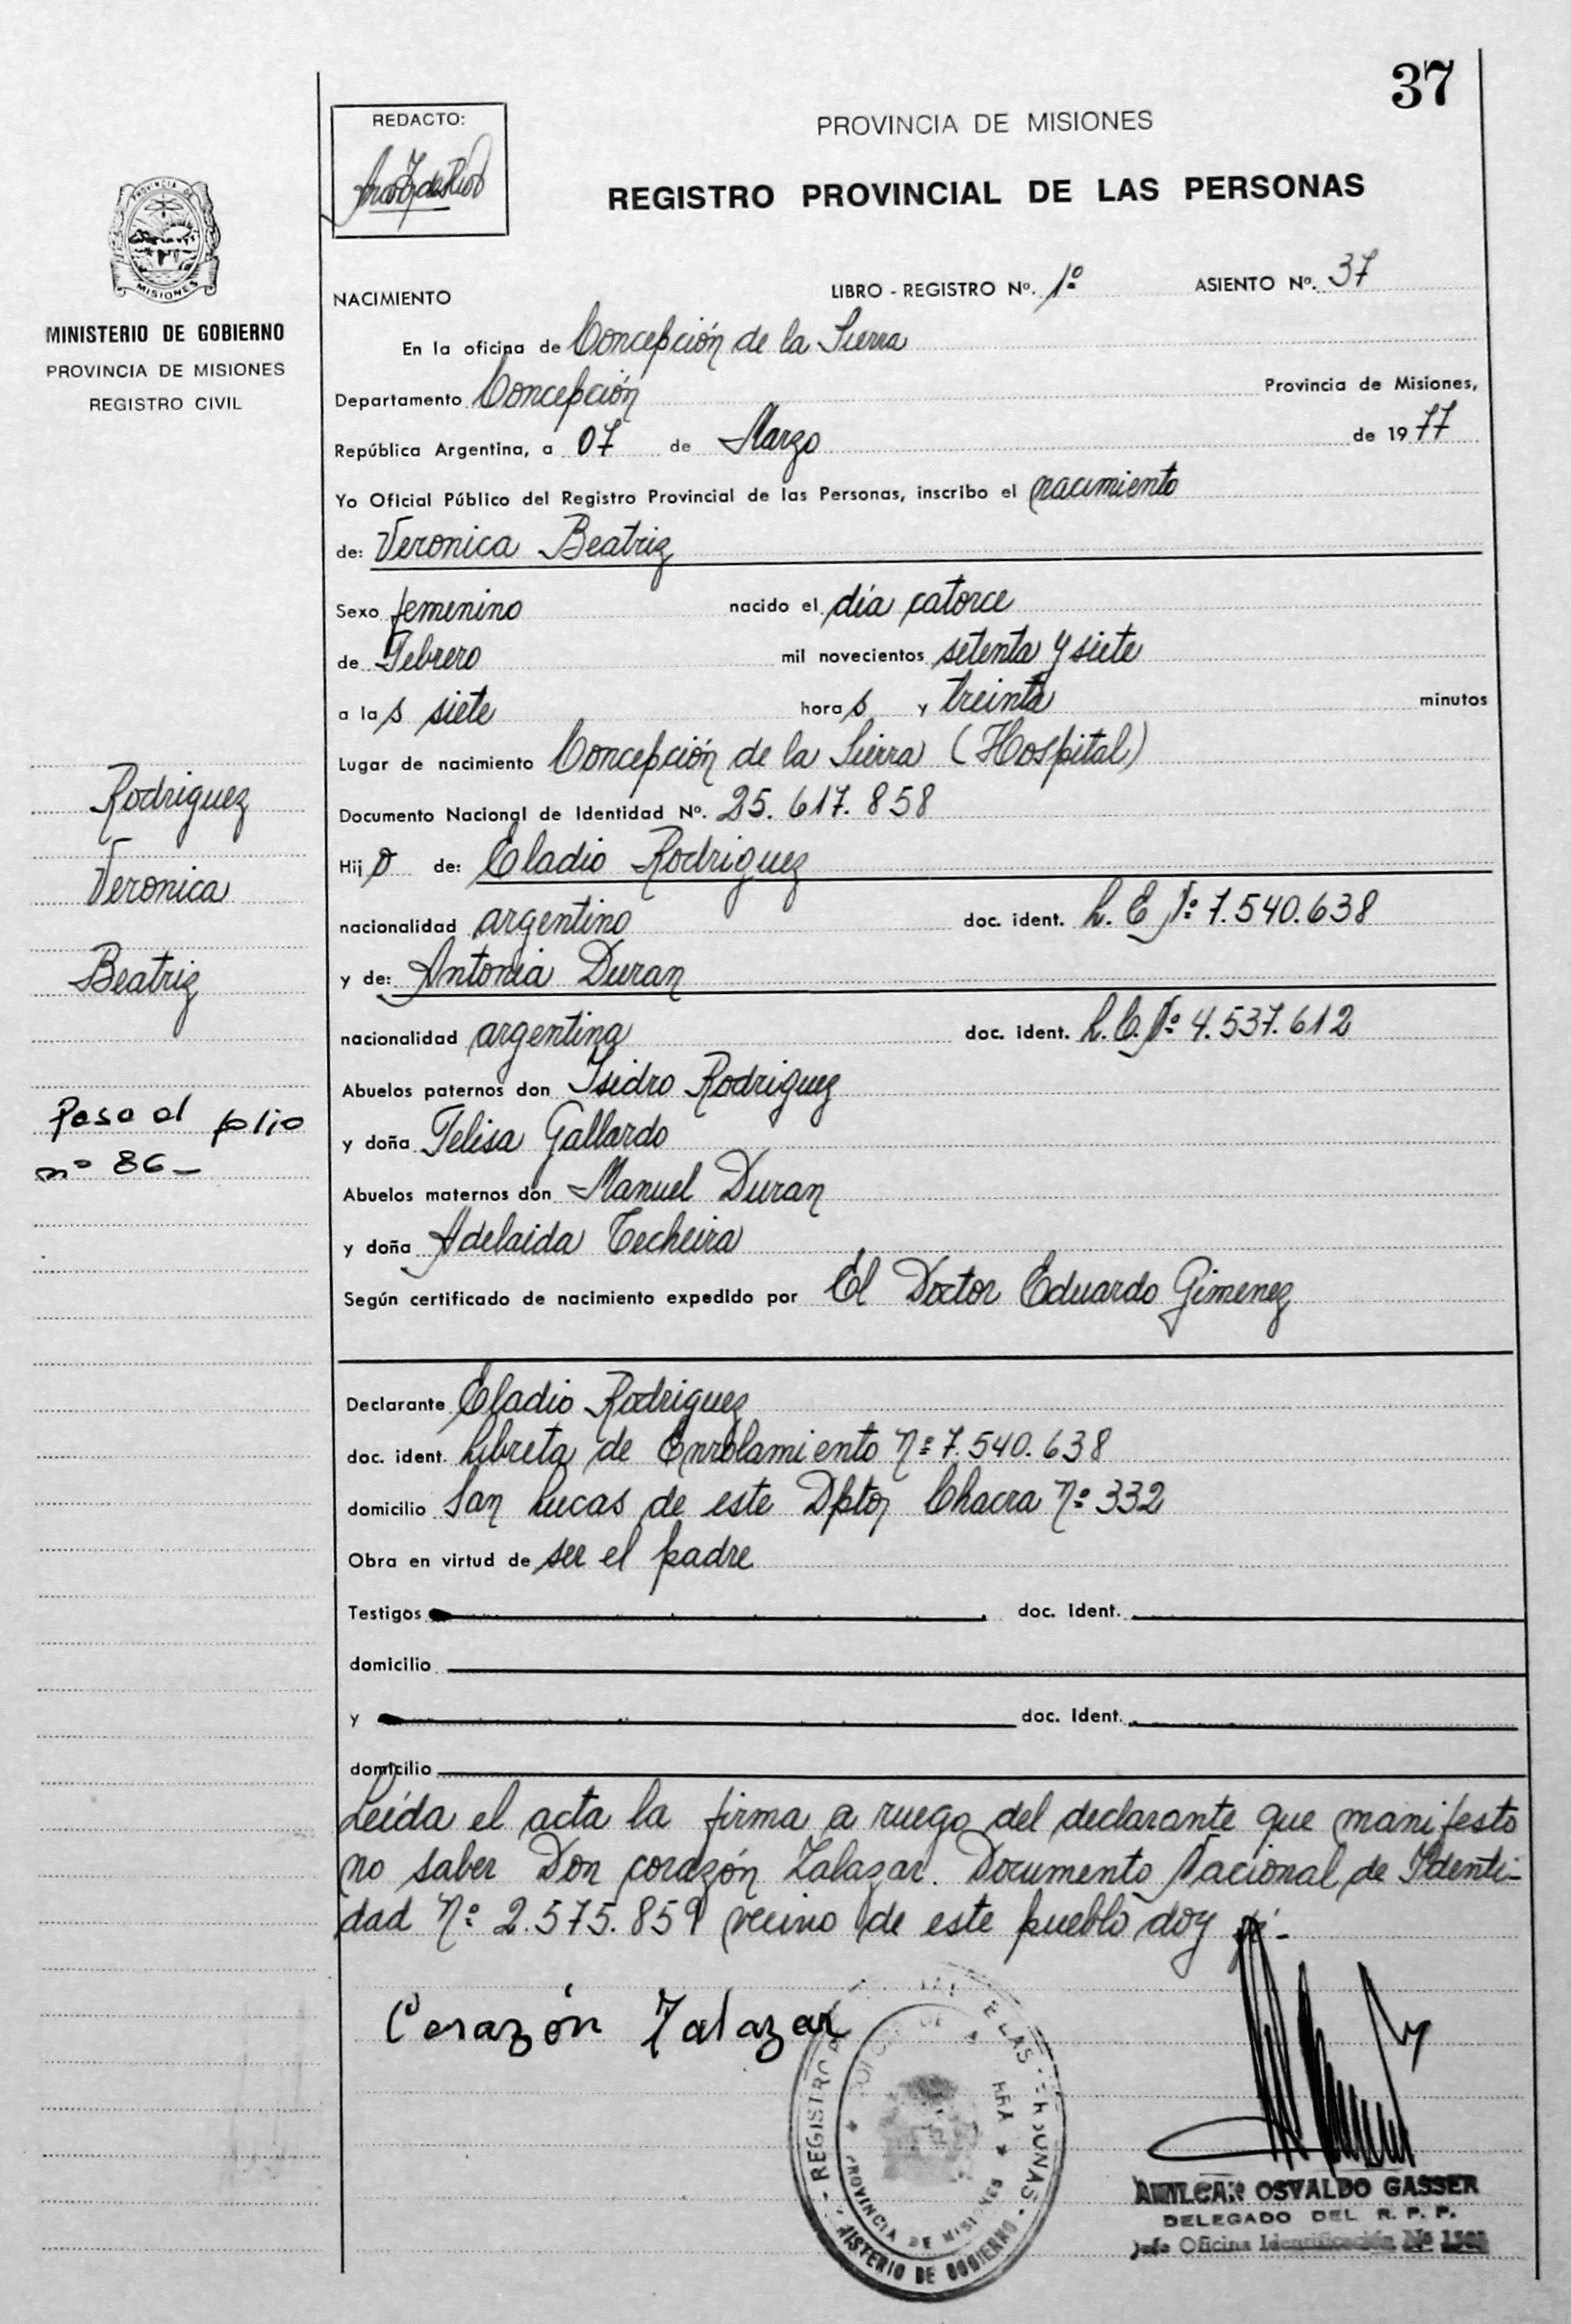 37
REDACTO:
PROVINCIA DE MISIONES
REGISTRO PROVINCIAL DE LAS PERSONAS
PROVINCIA DE
MISIONES
MINISTERIO DE GOBIERNO
PROVINCIA DE MISIONES
REGISTRO CIVIL
NACIMIENTO LIBRO - REGISTRO Nº. 1º ASIENTO Nº. 37
En la oficina de Concepción de la Sierra
Departamento Concepción Provincia de Misiones,
República Argentina, a 07 de Marzo de 1977
Yo Oficial Público del Registro Provincial de las Personas, inscribo el nacimiento
de: Veronica Beatriz
Sexo femenino nacido el día catorce
de Febrero mil novecientos setenta y siete
a las siete horas y treinta minutos
Lugar de nacimiento Concepción de la Sierra (Hospital)
Documento Nacional de Identidad Nº. 25.617.858
Hija de: Eladio Rodriguez
nacionalidad argentino doc. ident. L.E Nº 7.540.638
y de: Antonia Duran
nacionalidad argentina doc. ident. L.C. Nº 4.537.612
Abuelos paternos don Isidro Rodriguez
y doña Felisa Gallardo
Abuelos maternos don Manuel Duran
y doña Adelaida Techeira
Según certificado de nacimiento expedido por El Doctor Eduardo Gimenez
Rodriguez
Veronica
Beatriz
Pasa al folio
nº 86-
Declarante Eladio Rodriguez
doc. ident. Libreta de Enrolamiento Nº 7.540.638
domicilio San Lucas de este Dpto, Chacra Nº 332
Obra en virtud de ser el padre
Testigos doc. ident.
domicilio
y doc. ident.
domicilio
Leída el acta la firma a ruego del declarante que manifesto
no saber Don corazón Zalazar. Documento Nacional de Identi-
dad Nº 2.575.859 vecino de este pueblo doy fé-
Corazón Zalazar
REGISTRO DE LAS PERSONAS
PROVINCIA DE MISIONES
MINISTERIO DE GOBIERNO
AMILCAR OSVALDO GASSER
DELEGADO DEL R. P. P.
Jefe Oficina Identificación Nº